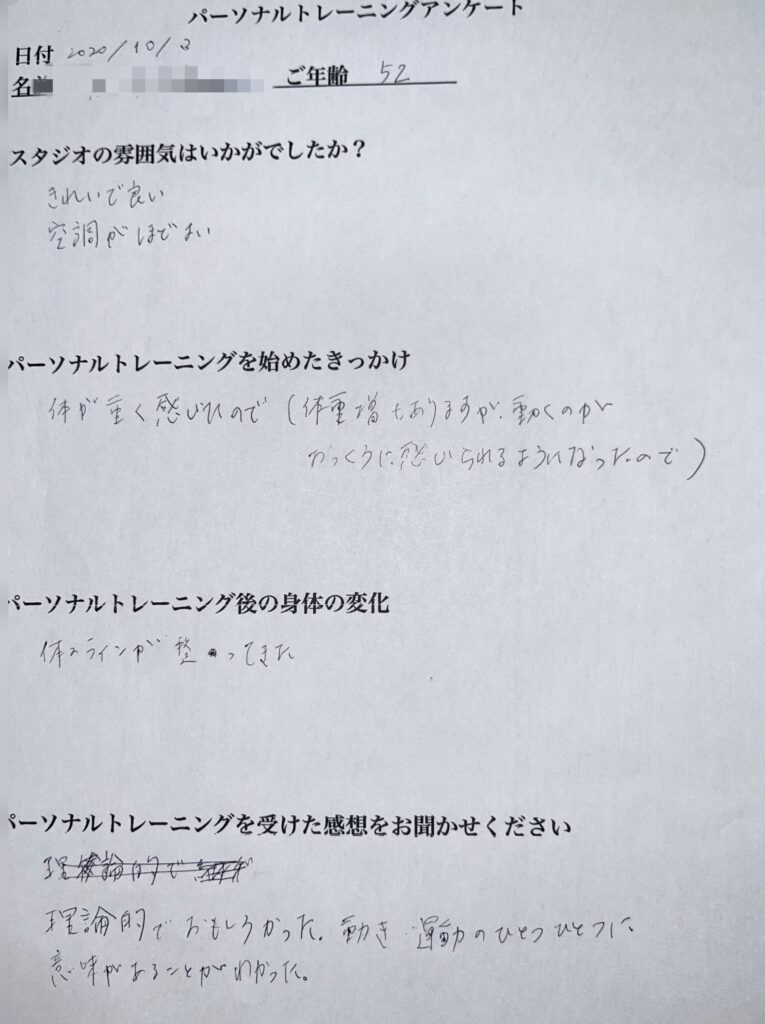 パーソナルトレーニングアンケート
日付 2020/10/3
名前 ご年齢 52
スタジオの雰囲気はいかがでしたか？
きれいで良い
空調がほどよい
パーソナルトレーニングを始めたきっかけ
体が重く感じたので(体重増もありますが、動くのが
おっくうに感じられるようになったので)
パーソナルトレーニング後の身体の変化
体のラインが整ってきた
パーソナルトレーニングを受けた感想をお聞かせください
理論的で
理論的でおもしろかった。動き・運動のひとつひとつに
意味があることがわかった。